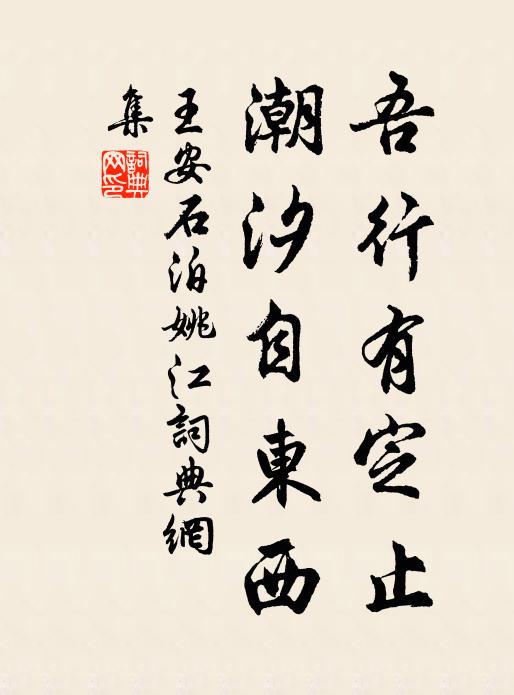 吾行有定止
潮汐自東西
王安石泊姚江詞典網
集
詞典網印